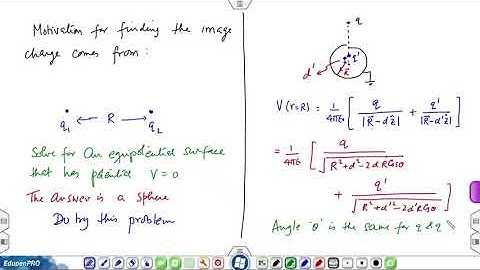 Motivation for finding the image
charge comes from :
q₁ ← R → q₂
Solve for an equipotential surface
that has potential V = 0
The answer is a sphere
Do try this problem
q
q'
d'
R
V(r=R) = 1/4πε₀ [ q/|R̄-dẑ| + q'/|R̄-d'ẑ| ]
= 1/4πε₀ [ q/√(R²+d²-2dRCosθ)
+ q'/√(R²+d'²-2d'RCosθ) ]
Angle 'θ' is the same for q & q'
EdupenPRO